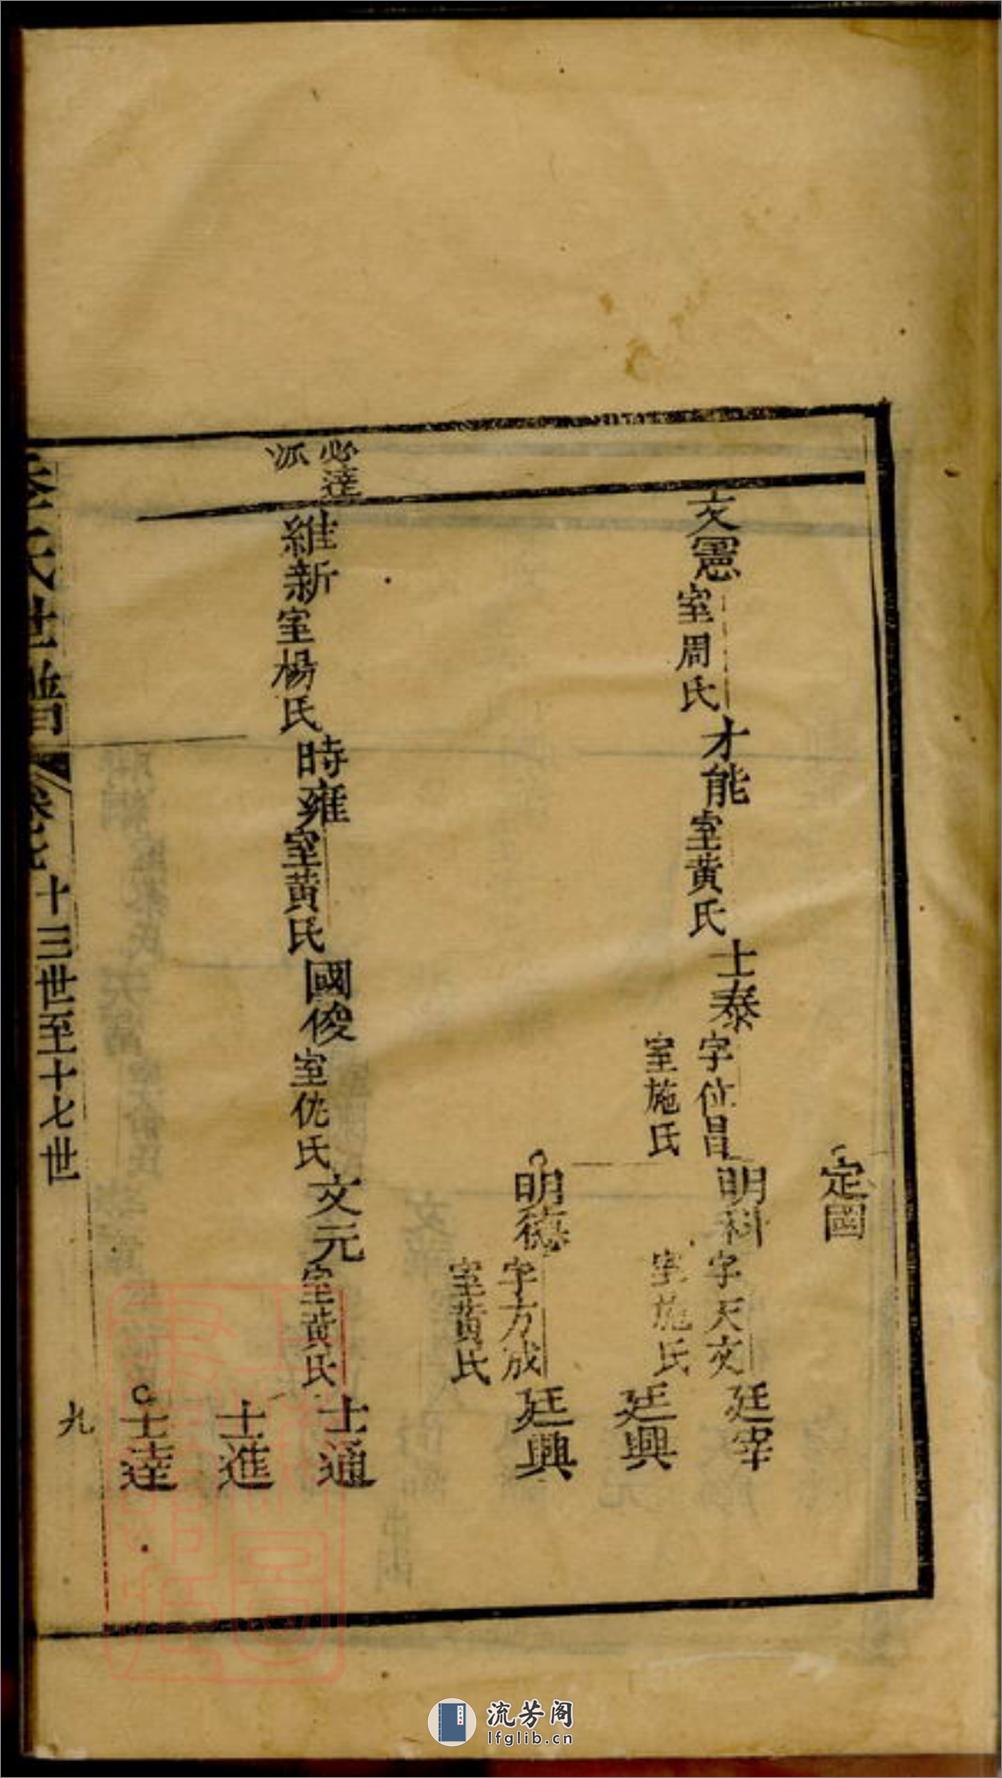 定國
文憲室周氏
才能室黃氏
士泰字位昌
室施氏
明科字天文
室施氏
廷宰
廷興
明德字方成
室黃氏
廷興
必達
派
維新室楊氏
時雍室黃氏
國俊室仇氏
文元室黃氏
士通
士進
士達
氏世譜
卷七
十三世至十七世
九
流芳阁
lfglib.cn